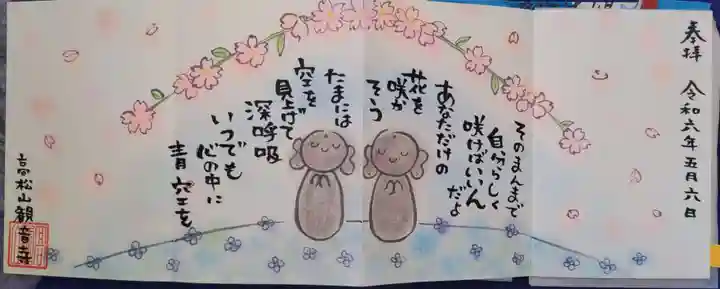 奉拝 令和六年五月六日
そのまんまで
自分らしく
咲けばいいん
だよ
あなただけの
花を
咲かそう
たまには
空を
見上げて
深呼吸
いつでも
心の中に
青空を
高松山観音寺